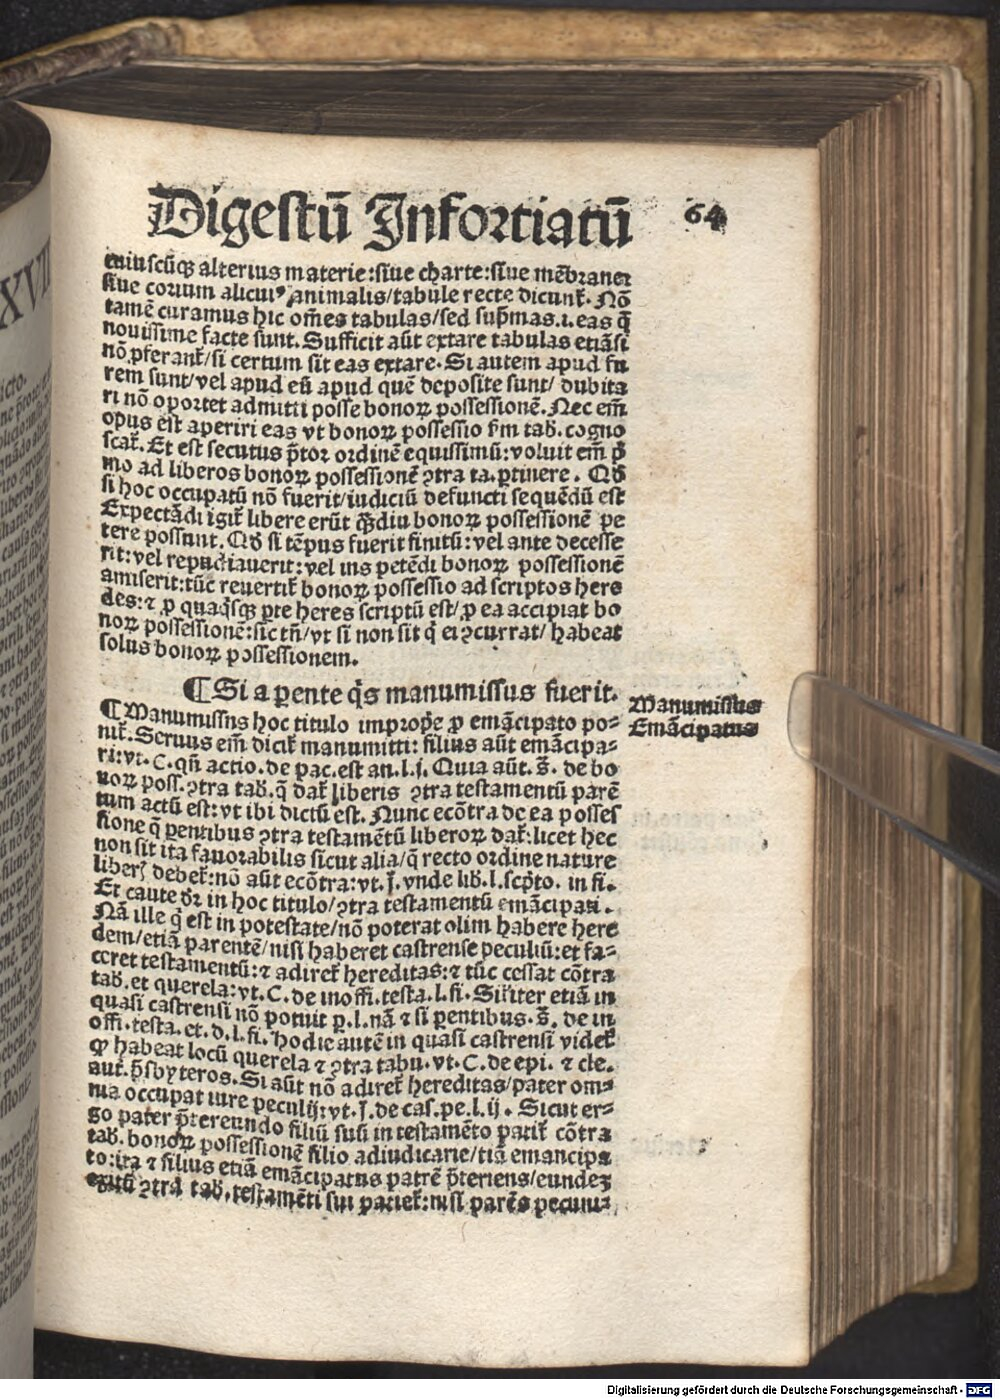 Digestū Infortiatū 64
cuiuscūqꝫ alterius materie:siue charte:siue mēbrane:
siue corium alicuiꝰ animalis/tabule recte dicunt̄. Nō
tamē curamus hic om̄es tabulas/sed sup̄mas.i.eas q̄
nouissime facte sunt. Sufficit aūt extare tabulas etiāsi
nō ꝓferant̄/si certum sit eas extare. Si autem apud fu
rem sunt/vel apud eū apud quē deposite sunt/ dubita
ri nō oportet admitti posse bonoꝝ possessionē. Nec em̄
opus est aperiri eas vt bonoꝝ possessio ẜm tab. cogno
scat̄. Et est secutus p̄tor ordinē equissimū: voluit em̄ p̄
mo ad liberos bonoꝝ possessionē ꝯtra ta.ꝑtinere. Qđ
si hoc occupatū nō fuerit/iudiciū defuncti sequēdū est
Expectādi igit̄ libere erūt q̄diu bonoꝝ possessionē pe
tere possunt. Qđ si tēpus fuerit finitū: vel ante decesse
rit: vel repudiauerit: vel ius petēdi bonoꝝ possessionē
amiserit: tūc reuertit̄ bonoꝝ possessio ad scriptos here
des: ⁊ ꝓ quaq̄sqꝫ ꝑte heres scriptū est/ꝓ ea accipiat bo
noꝝ possessionē: sic tn̄/vt si non sit q̄ ei ꝯcurrat/ habeat
solus bonoꝝ possessionem.
¶ Si a ꝑente q̄s manumissus fuerit.
Manumissus
Emācipatus
¶ Manumissus hoc titulo impropͥe ꝓ emācipato po-
nit̄. Seruus em̄ dicit̄ manumitti: filius aūt emācipa-
ri: vt. C. qn̄ actio. de pac. est an. l. j. Quia aūt. s̄. de bo
noꝝ poss. ꝯtra tab. q̄ dat̄ liberis ꝯtra testamentū parē
tum actū est: vt ibi dictū est. Nunc ecōtra de ea posses
sione q̄ ꝑentibus ꝯtra testamētū liberoꝝ dat̄: licet hec
non sit ita fauorabilis sicut alia/q̄ recto ordine nature
liberꝭ debet̄: nō aūt ecōtra: vt. j̄. vnde lib. l. scp̄to. in fi.
Et caute dr̄ in hoc titulo/ꝯtra testamentū emācipati.
Nā ille q̄ est in potestate/nō poterat olim habere here
dem/etiā parentē/nisi haberet castrense peculiū: et fa-
ceret testamentū: ⁊ adiret̄ hereditas: ⁊ tūc cessat cōtra
tab. et querela: vt. C. de inoffi. testa. l. fi. Sil̄iter etiā in
quasi castrensi nō potuit ꝑ. l. nā ⁊ si ꝑentibus. s̄. de in
offi. testa. et. d. l. fi. hodie autē in quasi castrensi videt̄
ꝙ habeat locū querela ⁊ ꝯtra tabu. vt. C. de epi. ⁊ cle.
aut. p̄sbyteros. Si aūt nō adiret̄ hereditas/pater om-
nia occupat iure peculij: vt. j̄. de cas. pe. l. ij. Sicut er-
go pater p̄tereundo filiū suū in testamēto patit̄ cōtra
tab. bonoꝝ possessionē filio adiudicari/etiā emancipa
to: ita ⁊ filius etiā emācipatus patrē p̄teriens/eundeꝫ
exitū ꝯtra tab. testamēti sui patiet̄: nisi parēs pecuni-
Digitalisierung gefördert durch die Deutsche Forschungsgemeinschaft - DFG